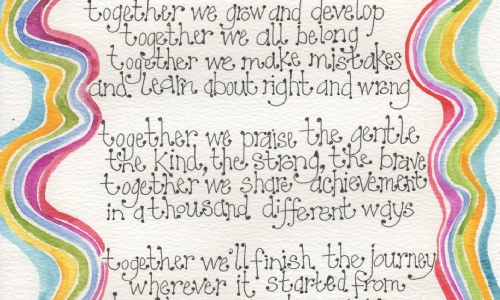 together we grow and develop
together we all belong
together we make mistakes
and learn about right and wrong
together we praise the gentle
the kind, the strong, the brave
together we share achievement
in a thousand different ways
together we'll finish the journey
wherever it started from